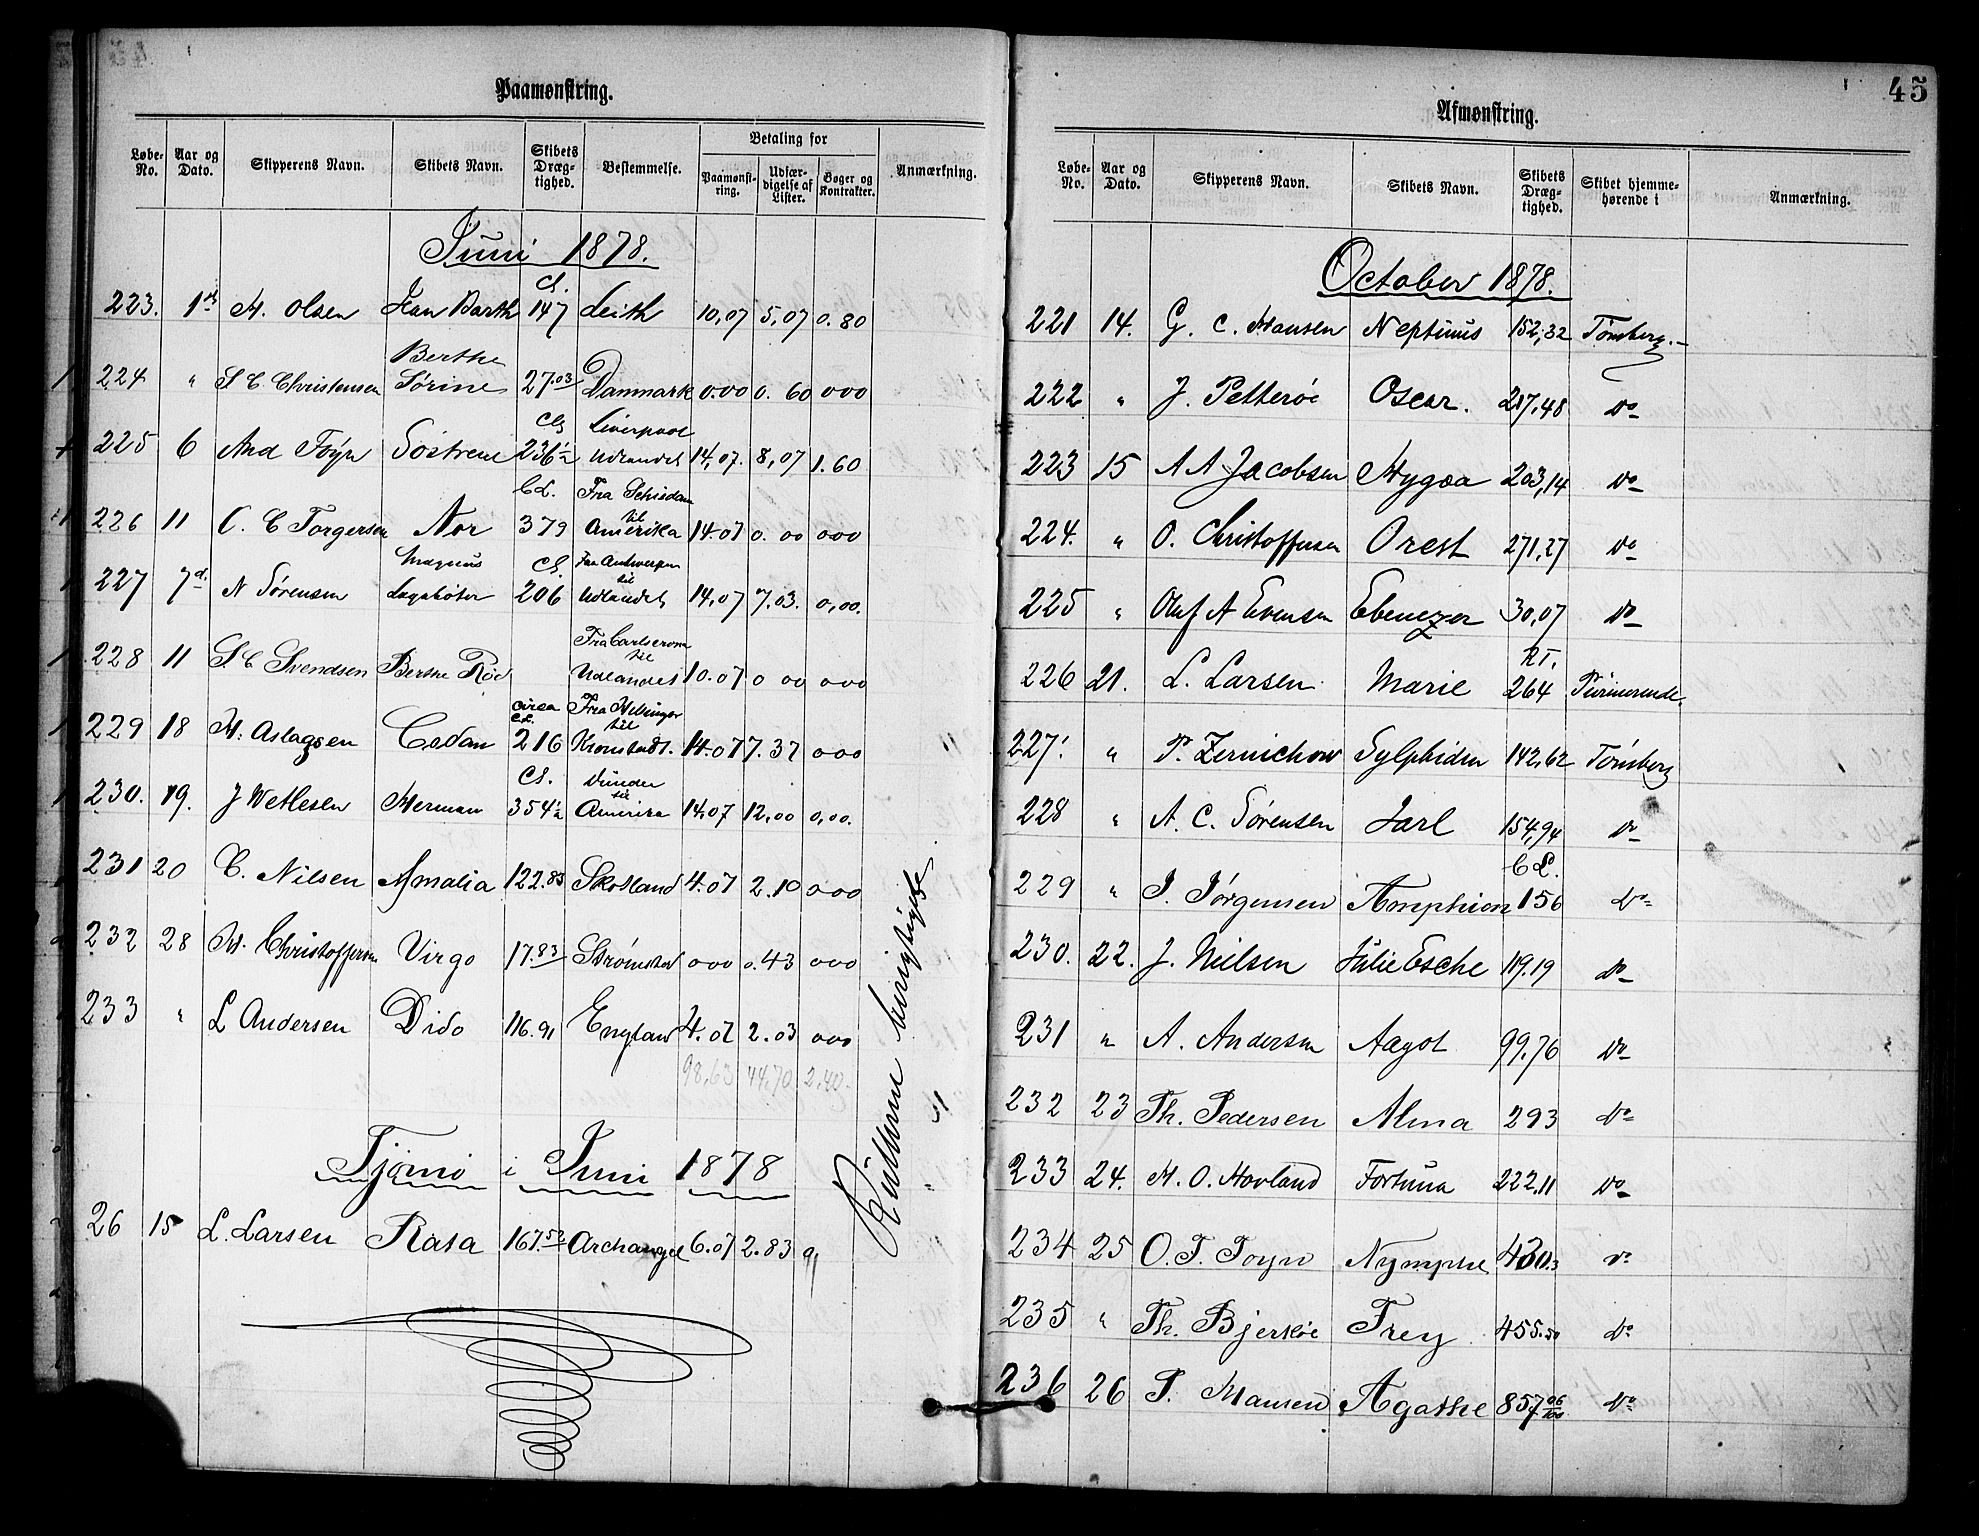 Paamønstring.
Løbe-No. Aar og Dato. Skipperens Navn. Skibets Navn. Skibets Dræg-tighed. Bestemmelse. Betaling for Paamønst-ring. Udfær-digelse af Lister. Bøger og Kontrakter. Anmærkning.
Juni 1878.
223. 1ste H. Olsen Jean Barth Cl. 147 Leith 10,07 5,07 0.80
224 " S C Christensen Berthe Sørine 27.03 Danmark 0.00 0. 60 000
225 6 And Føyn Søstrene Cl 236½ Liverpool Udlandet 14,07. 8,07 1.60
226 11 C. C Torgersen Nor CL. 379 Fra Schiedam til Amerika 14.07 0. 00 000
227 7d. N Sørensen Magnus Lagabøter Cl. 206 Fra Antwerpen til Udlandet 14,07 7.03. 0,00.
228 11 S C Svendsen Berthe Rød Fra Carlscrona til Udlandet 10.07 0 00 000
229 18 H. Aslagsen Cedan circa CL. 216 Fra Helsingør til Kronstadt. 14.07 7.37 000
230. 19. J Wetlesen Herman Cl. 354½ Dundee til Amerika 14,07 12,00 0,00.
231 20 C. Nilsen Amalia 122.83 Skotland 4.07 2.10 000
232 28 H. Christoffersen Virgo 17.83 Strømstad 000 0.43 000
233 " L Andersen Dido 116.91 England 4.07 2.03 000
98,63 44,70 2,40.
Tjømø i Juni 1878
26 15 L. Larsen Rasa 167.52 Archangel 6.07 2.83 91
45
Afmønstring.
Løbe-No. Aar og Dato. Skipperens Navn. Skibets Navn. Skibets Dræg-tighed. Skibet hjemme-hørende i Anmærkning.
October 1878.
221 14. G. C. Hansen Neptunus 152,32 Tønsberg.
222 " J. Petterøe Oscar. 217,48 do
223 15 A A Jacobsen Hygæa 203,14 do
224. " O. Christoffersen Orest 271,27 do
225 " Oluf A Evensen Ebenezer 30,07 do
226 21. L. Larsen Marie RT. 264 Purmerende.
227. " P. Zernichow Sylphiden 142,62 Tønsberg
228 " A. C. Sørensen Jarl 154,94 do
229 " J. Jørgensen Amphion CL. 156 do
230. 22. J. Nielsen Julie Esche 119.19 do
231 " A. Andersen Aagot 99,76 do
232 23 Th. Pedersen Alma 293 do
233 24. H. O. Hovland Fortuna 222,11 do
234 25 O. F. Foyn Nymphe 430.3 do
235 " Th. Bjerkøe Frey 455.50 do
236 26 P. Hansen Agathe 857 06/100 do